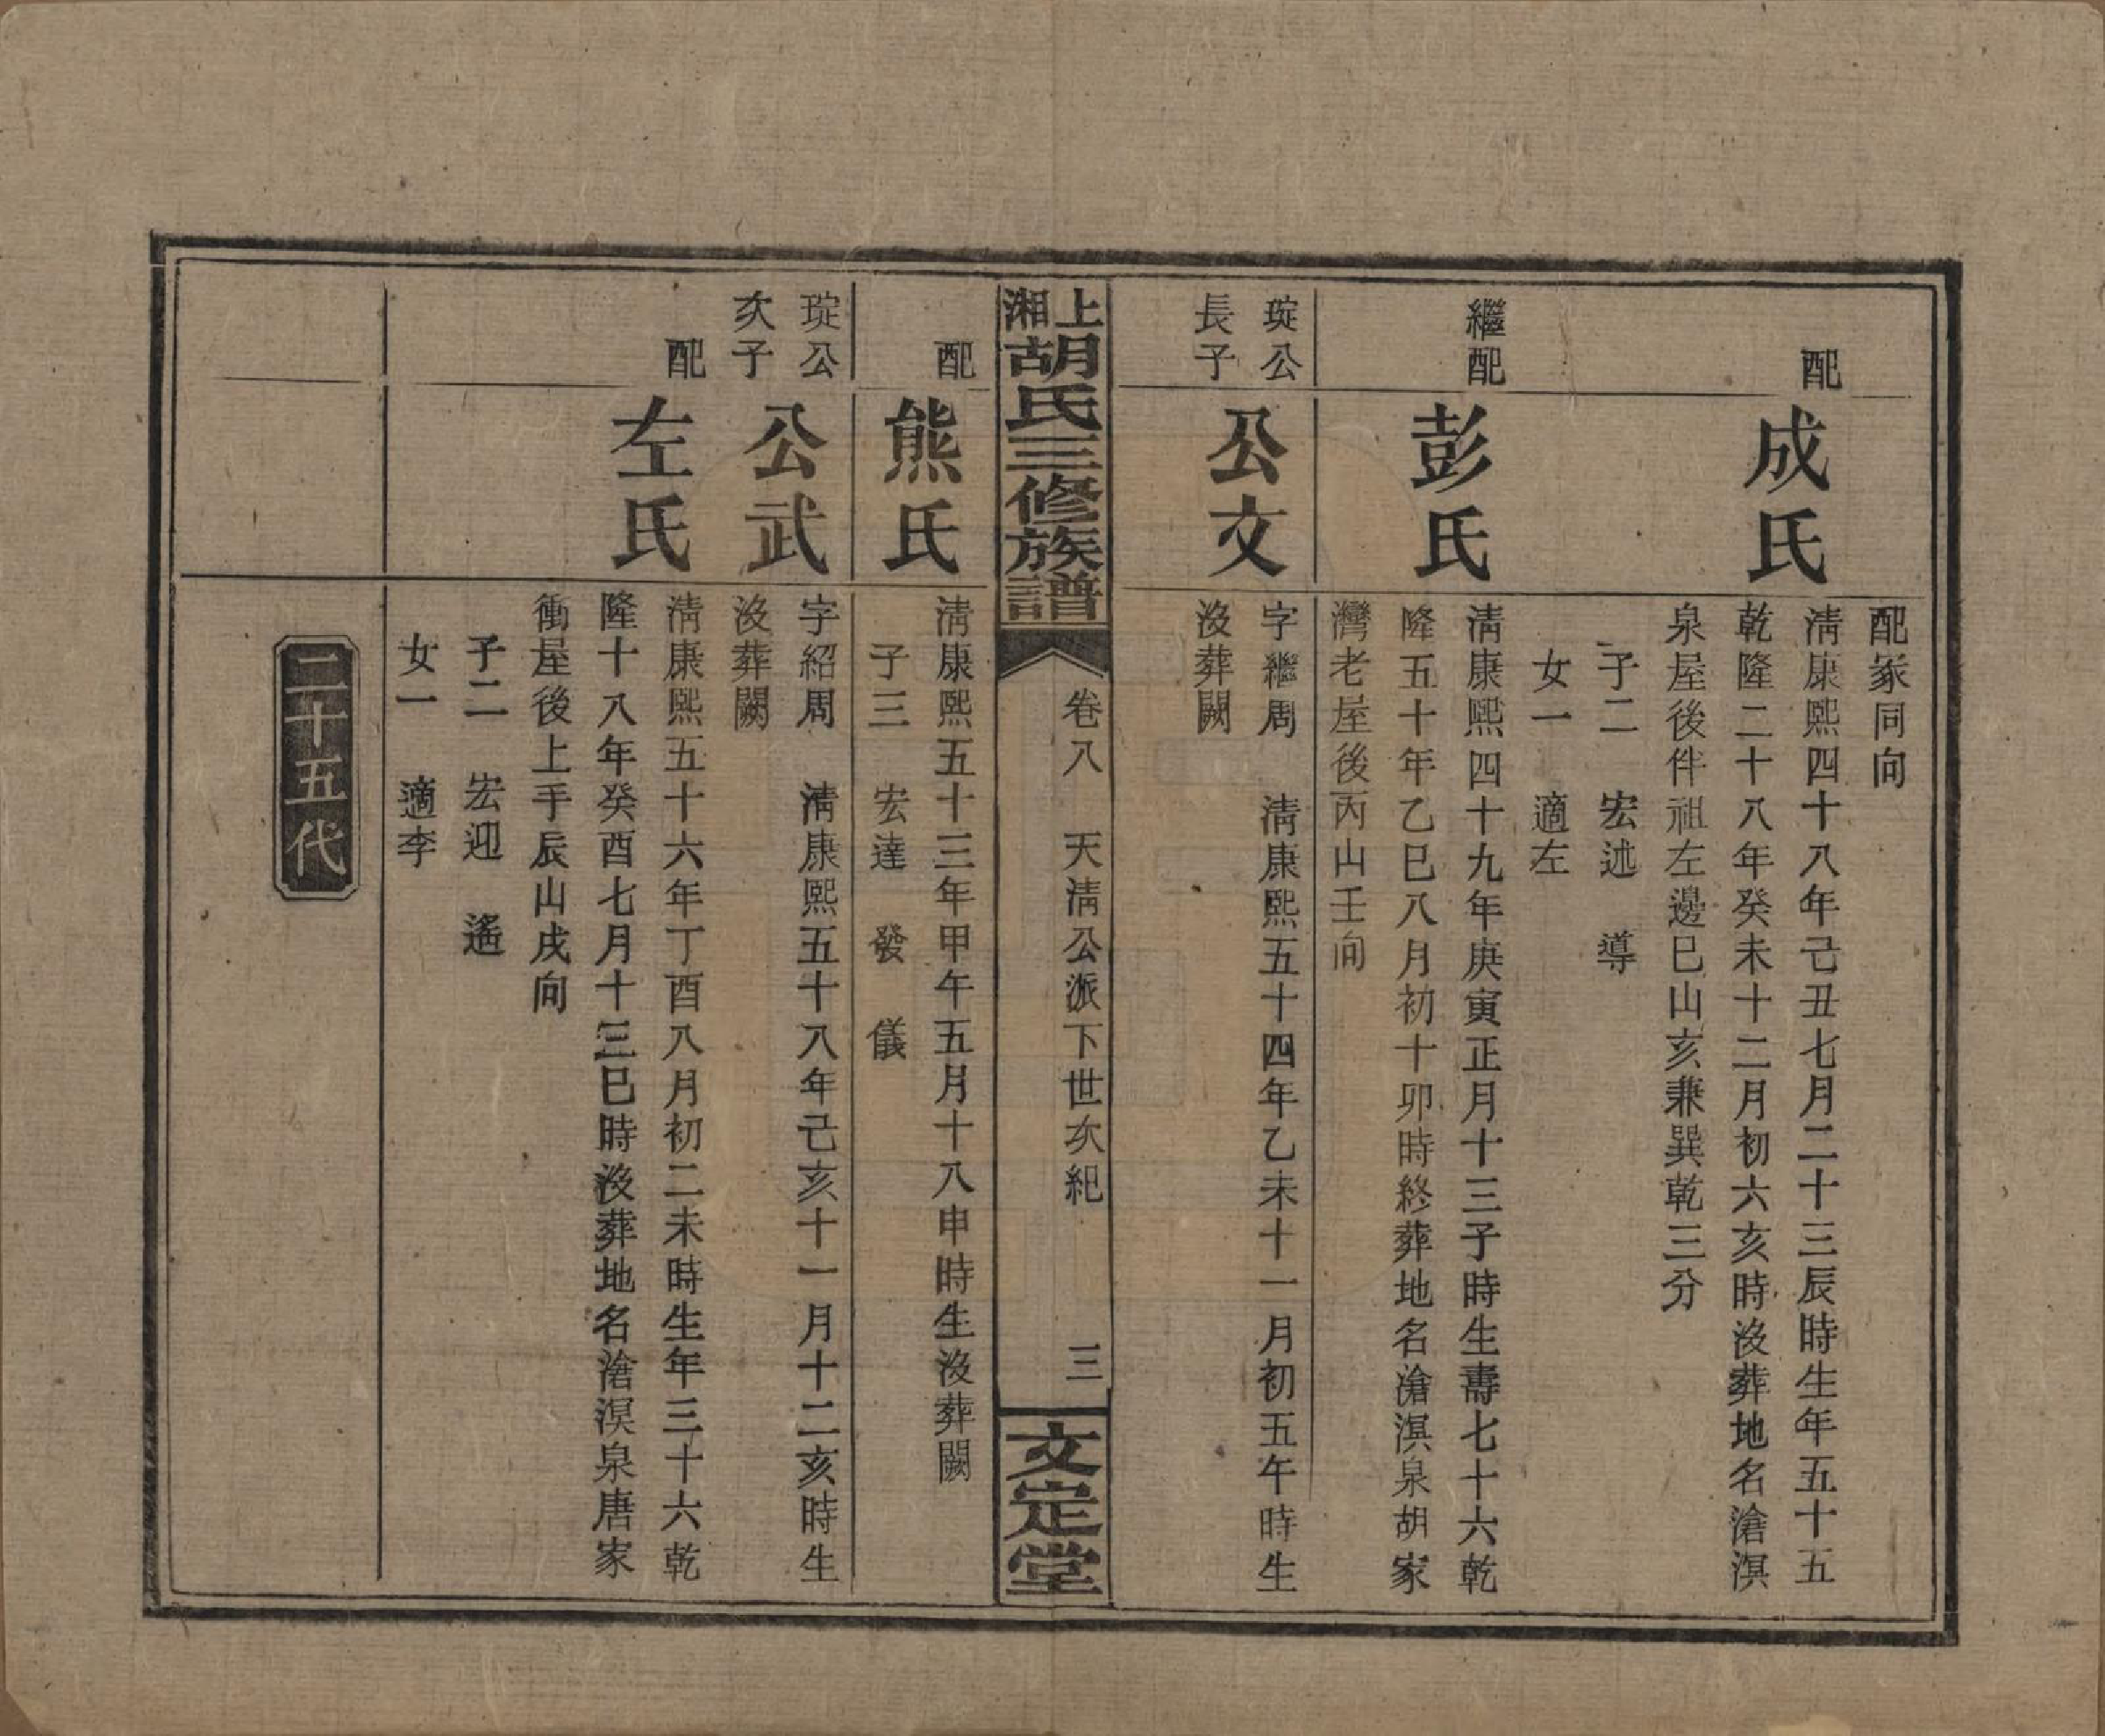 配冢同向
配
成氏
淸康熙四十八年己丑七月二十三辰時生年五十五
乾隆二十八年癸未十二月初六亥時沒葬地名滄溟
泉屋後伴祖左邊巳山亥兼巽乾三分
子二 宏述 導
女一 適左
繼配
彭氏
淸康熙四十九年庚寅正月十三子時生壽七十六乾
隆五十年乙巳八月初十卯時終葬地名滄溟泉胡家
灣老屋後丙山壬向
琔公
長子
公文
字繼周 淸康熙五十四年乙未十一月初五午時生
沒葬闕
上湘胡氏三修族譜
卷八 天淸公派下世次紀 三
文定堂
配
熊氏
淸康熙五十三年甲午五月十八申時生沒葬闕
子三 宏達 發 儀
琔公
次子
公武
字紹周 淸康熙五十八年己亥十一月十二亥時生
沒葬闕
配
左氏
淸康熙五十六年丁酉八月初二未時生年三十六乾
隆十八年癸酉七月十三巳時沒葬地名滄溟泉唐家
衝屋後上手辰山戌向
子二 宏迎 遙
女一 適李
二十五代